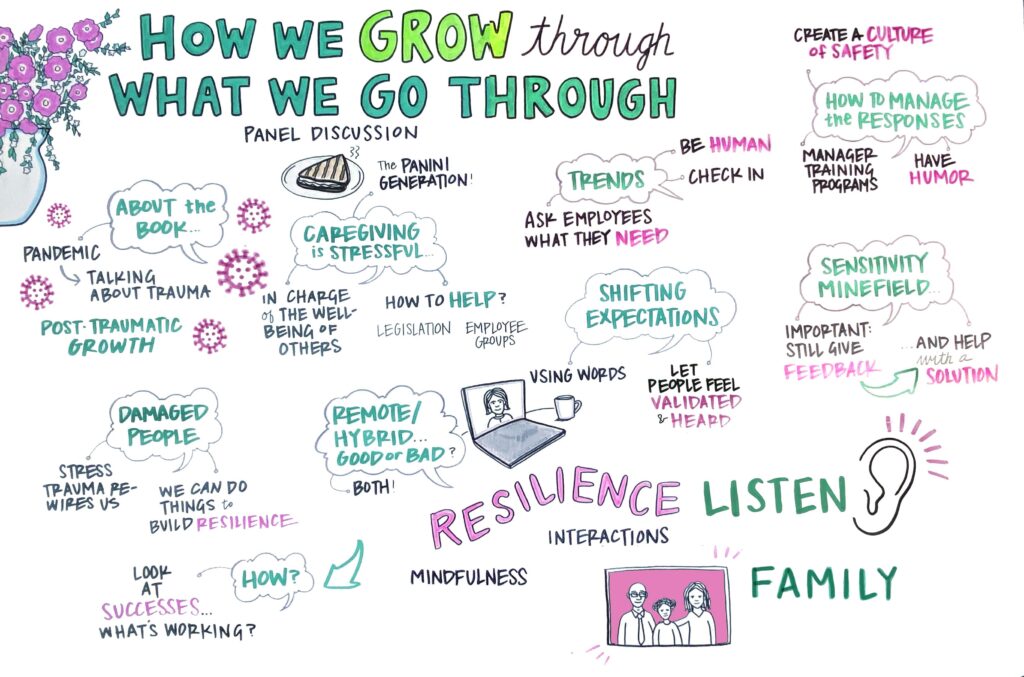 HOW WE GROW through
WHAT WE GO THROUGH
PANEL DISCUSSION
The PANINI
GENERATION!
ABOUT the
BOOK...
PANDEMIC
TALKING
ABOUT TRAUMA
POST-TRAUMATIC
GROWTH
CAREGIVING
is STRESSFUL...
IN CHARGE
of THE WELL-
BEING OF
OTHERS
HOW TO HELP?
LEGISLATION
EMPLOYEE
GROUPS
TRENDS
BE HUMAN
CHECK IN
ASK EMPLOYEES
WHAT THEY NEED
CREATE A CULTURE
OF SAFETY
HOW TO MANAGE
the RESPONSES
MANAGER
TRAINING
PROGRAMS
HAVE
HUMOR
SHIFTING
EXPECTATIONS
USING WORDS
LET
PEOPLE FEEL
VALIDATED
& HEARD
SENSITIVITY
MINEFIELD...
IMPORTANT:
STILL GIVE
FEEDBACK
...AND HELP
with a
SOLUTION
DAMAGED
PEOPLE
STRESS
TRAUMA RE-
WIRES US
WE CAN DO
THINGS to
BUILD RESILIENCE
REMOTE/
HYBRID...
GOOD or BAD?
BOTH!
HOW?
LOOK
AT
SUCCESSES...
WHAT'S WORKING?
RESILIENCE
INTERACTIONS
MINDFULNESS
LISTEN
FAMILY